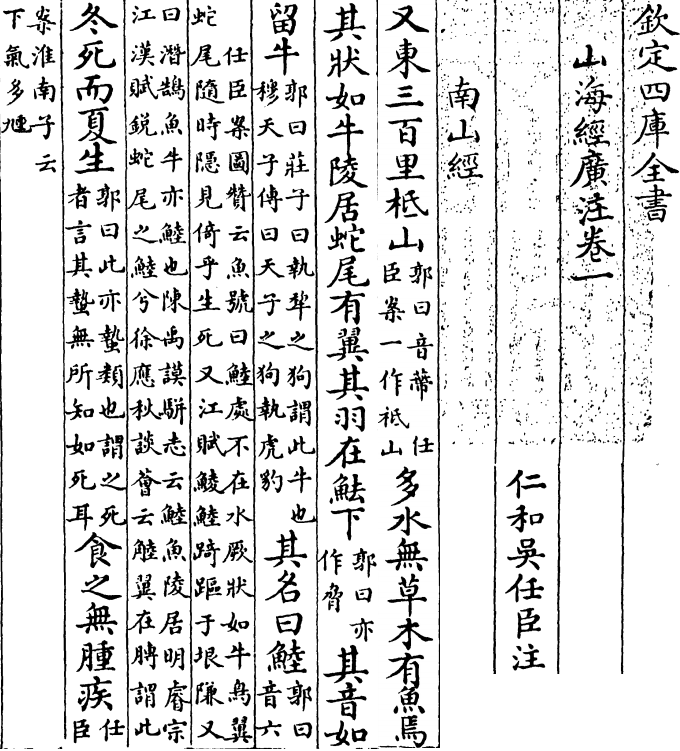 欽定四庫全書
山海經廣注卷一
仁和吳任臣注
南山經
又東三百里柢山郭曰音蔕 任臣案一作祗山多水無草木有魚焉
其狀如牛陵居蛇尾有翼其羽在魼下郭曰亦作脅其音如
留牛郭曰莊子曰執犂之狗謂此牛也穆天子傳曰天子之狗執虎豹其名曰鯥郭曰音六
任臣案圖贊云魚號曰鯥處不在水厥狀如牛鳥翼
蛇尾隨時隱見倚乎生死又江賦鯪鯥踦䠧于垠隒又
曰潛鵠魚牛亦鯥也陳禹謨駢志云鯥魚陵居明睿宗
江漢賦銳蛇尾之鯥兮徐應秋談薈云鯥翼在髀謂此
冬死而夏生郭曰此亦蟄類也謂之死者言其蟄無所知如死耳食之無腫疾任臣
案淮南子云
下氣多尰